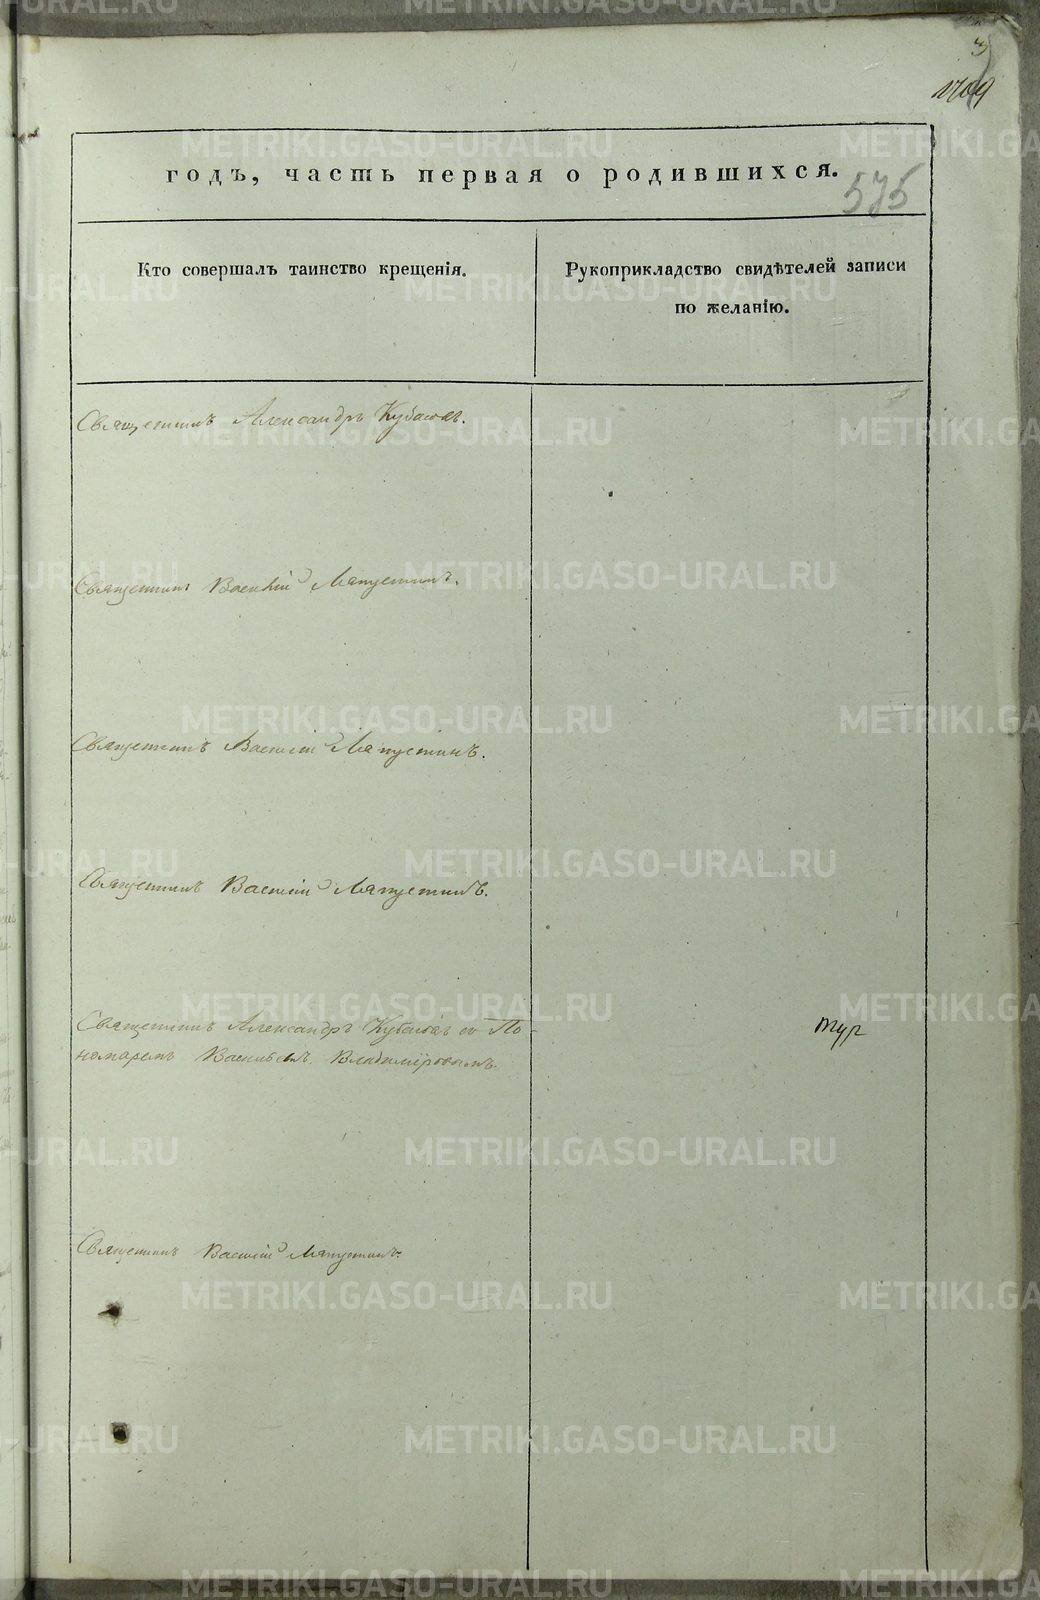 3
1709
годъ, часть первая о родившихся.
575
Кто совершалъ таинство крещенія.
Рукоприкладство свидѣтелей записи
по желанію.
Священникъ Александръ
Священникъ Василій Ляпустинъ.
Священникъ Василій Ляпустинъ.
Священникъ Василій Ляпустинъ.
Священникъ Александръ съ По-
номаремъ Васильемъ Владиміровымъ.
тур
Священникъ Василій Ляпустинъ.
METRIKI.GASO-URAL.RU